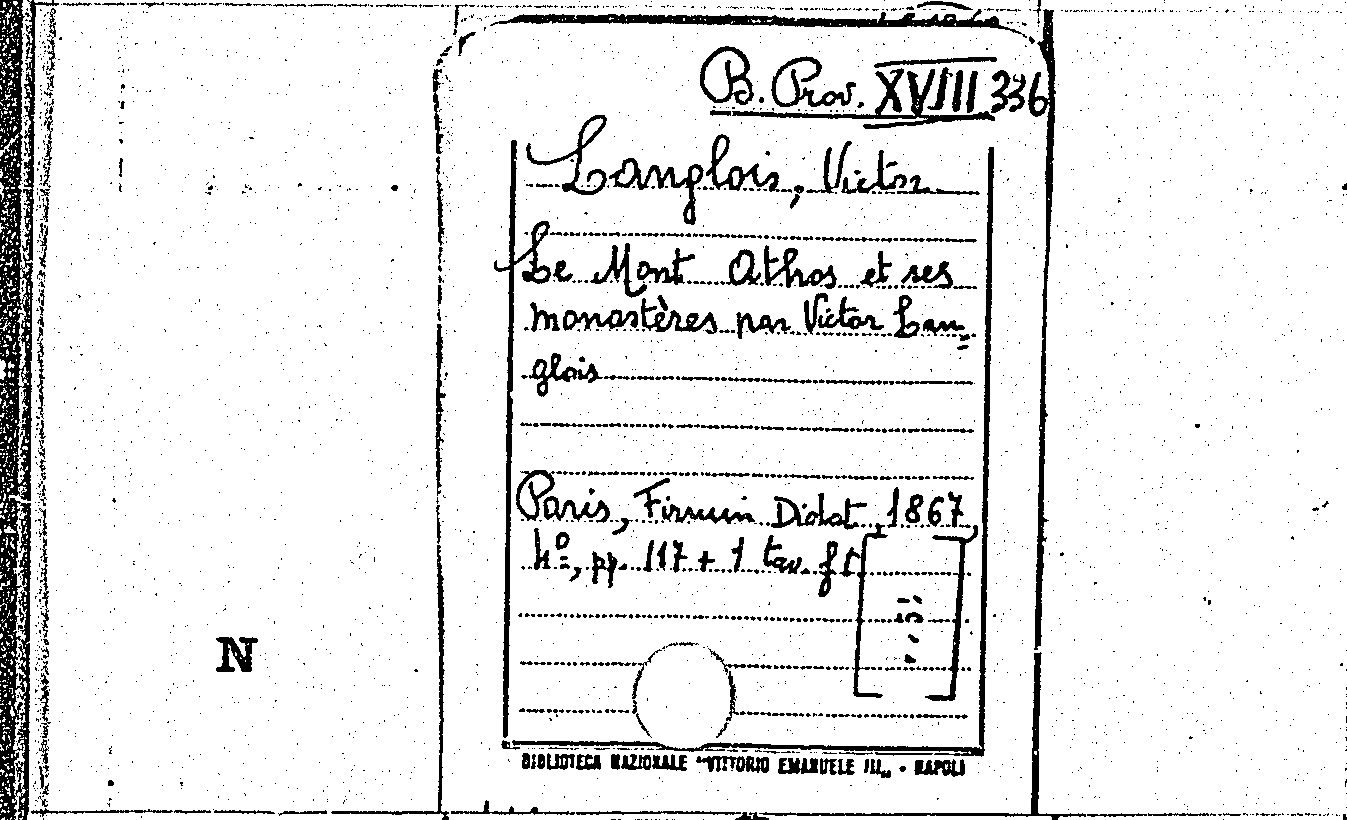 B. Prov. XVIII 336
Langlois, Victor
Le Mont Athos et ses
monastères par Victor Lan=
glois
Paris, Firmin Didot, 1867,
4º, pp. 117 + 1 tav. f t.
N
BIBLIOTECA NAZIONALE "VITTORIO EMANUELE III„ - NAPOLI